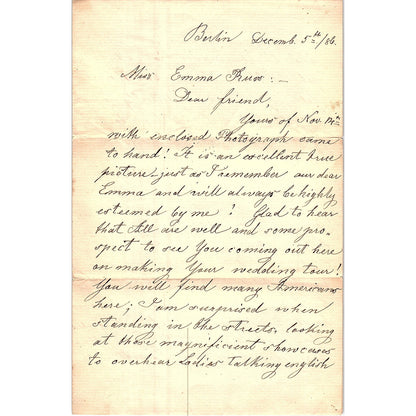 Berlin Decemb. 5th/86.
Miss Emma Kruse:—
Dear friend,
Yours of Nov. 14th
with enclosed Photograph came
to hand! It is an excellent true
picture, just as I remember our dear
Emma and will always be highly
esteemed by me! Glad to hear
that All are well and some pro-
spect to see You coming out here
on making Your wedding tour!
You will find many Americans
here; I am surprised when
standing in the streets, looking
at those magnificent showcases
to overhear Ladies talking english